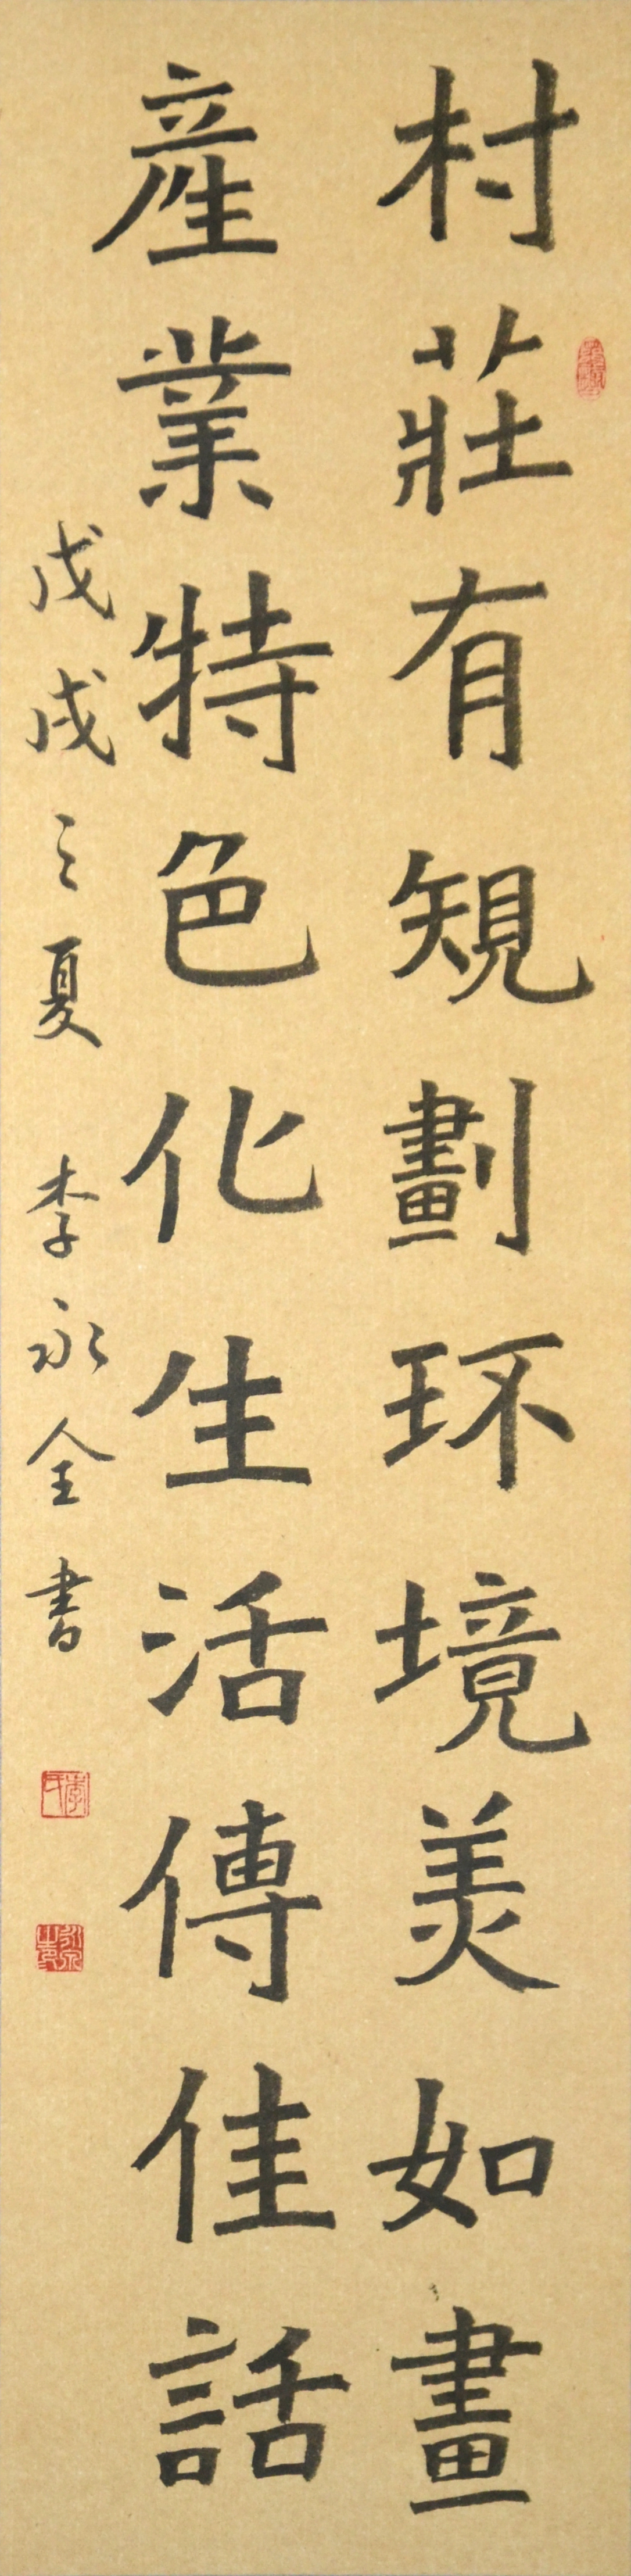 村莊有規劃环境美如畫
産業特色化生活傳佳話
戊戌之夏 李永全書